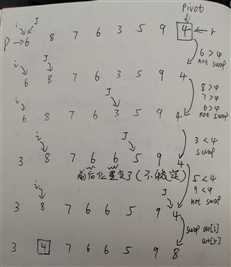 Pivot
i J
P→6 8 7 6 3 5 9 4 ←r
6>4
not swap
i J
6 8 7 6 3 5 9 4
8>4
7>4
6>4
not swap
i J
6 8 7 6 3 5 9 4
3<4
swap
i J
3 8 7 6 6 5 9 4
前后位置变了(不稳定)
5<4
9<4
not swap
i J
3 8 7 6 6 5 9 4
swap arr[i]
arr[r]
3 4 7 6 6 5 9 8